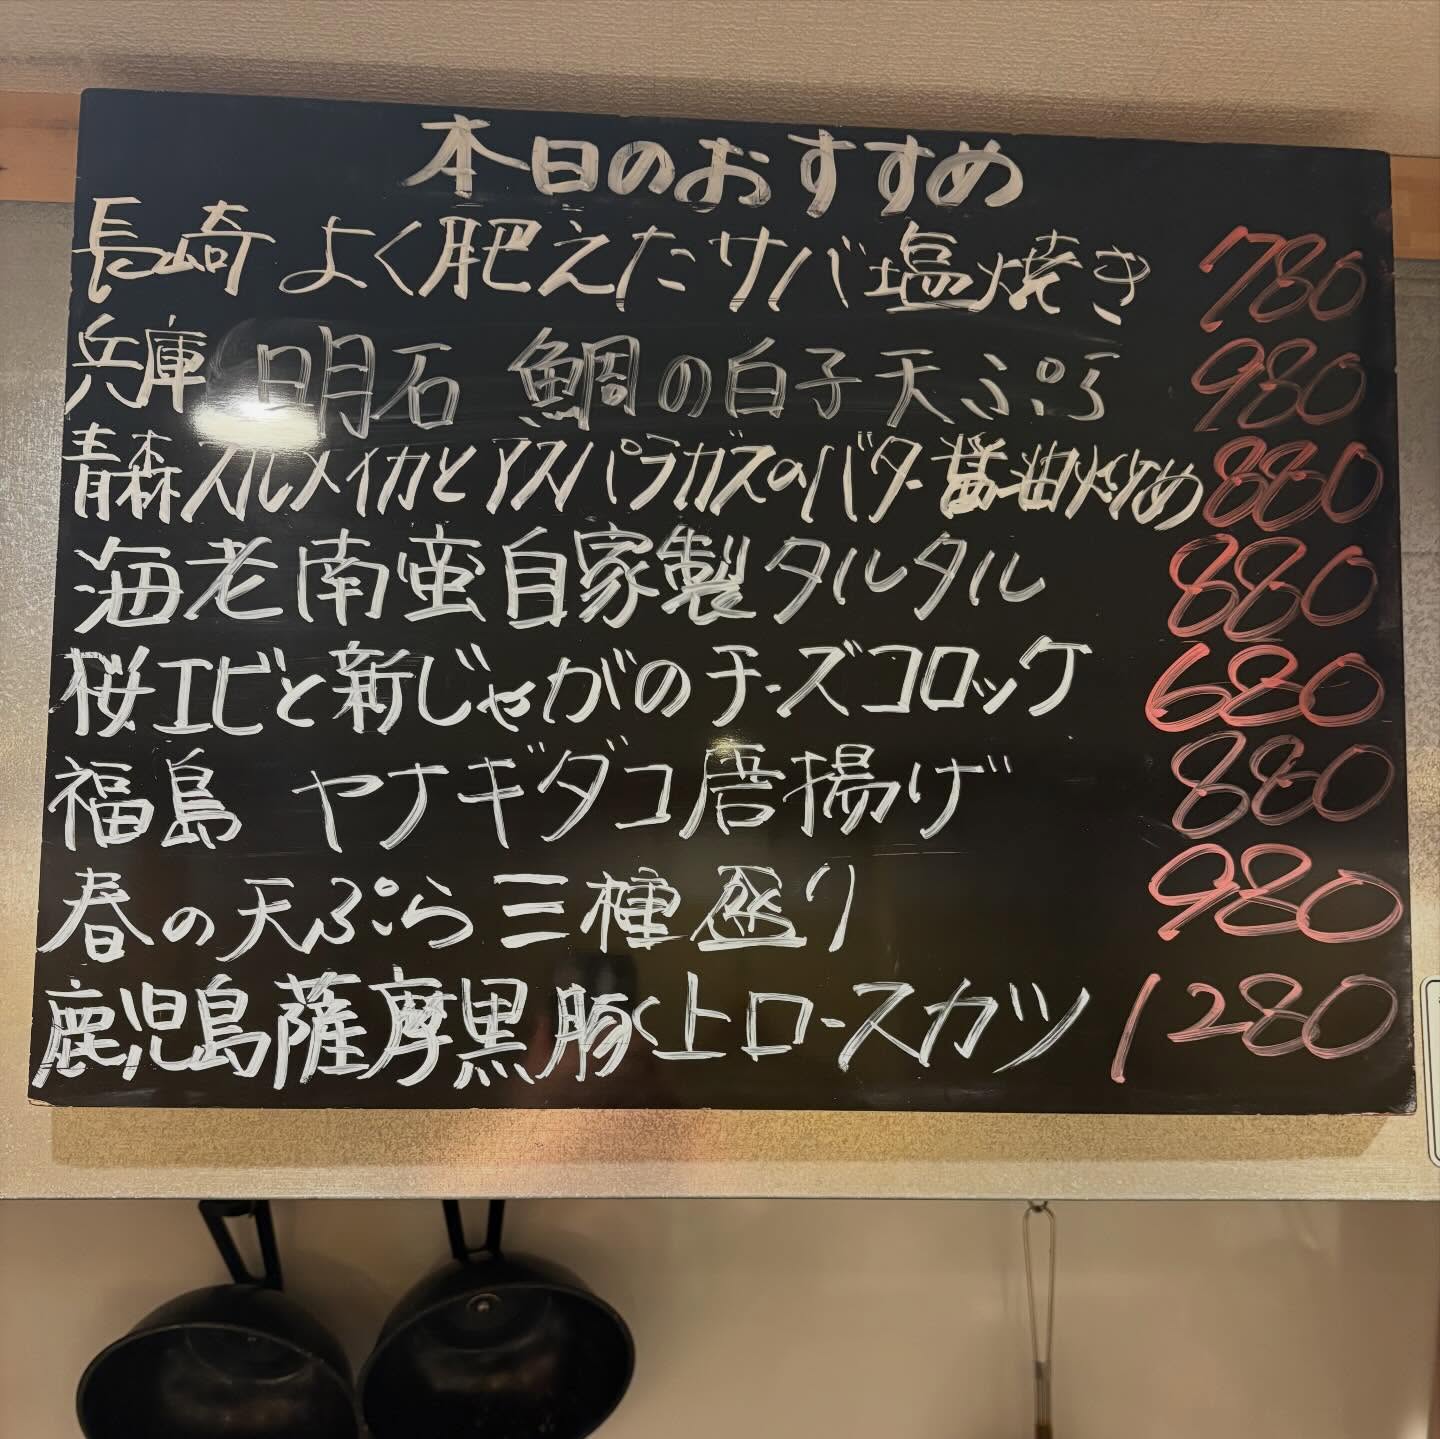 本日のおすすめ
長崎 よく肥えたサバ塩焼き 780
兵庫 明石 鯛の白子天ぷら 980
青森スルメイカとアスパラガスのバター醤油炒め 880
海老南蛮自家製タルタル 880
桜エビと新じゃがのチーズコロッケ 680
福島 ヤナギダコ唐揚げ 880
春の天ぷら三種盛り 980
鹿児島薩摩黒豚上ロースカツ 1280